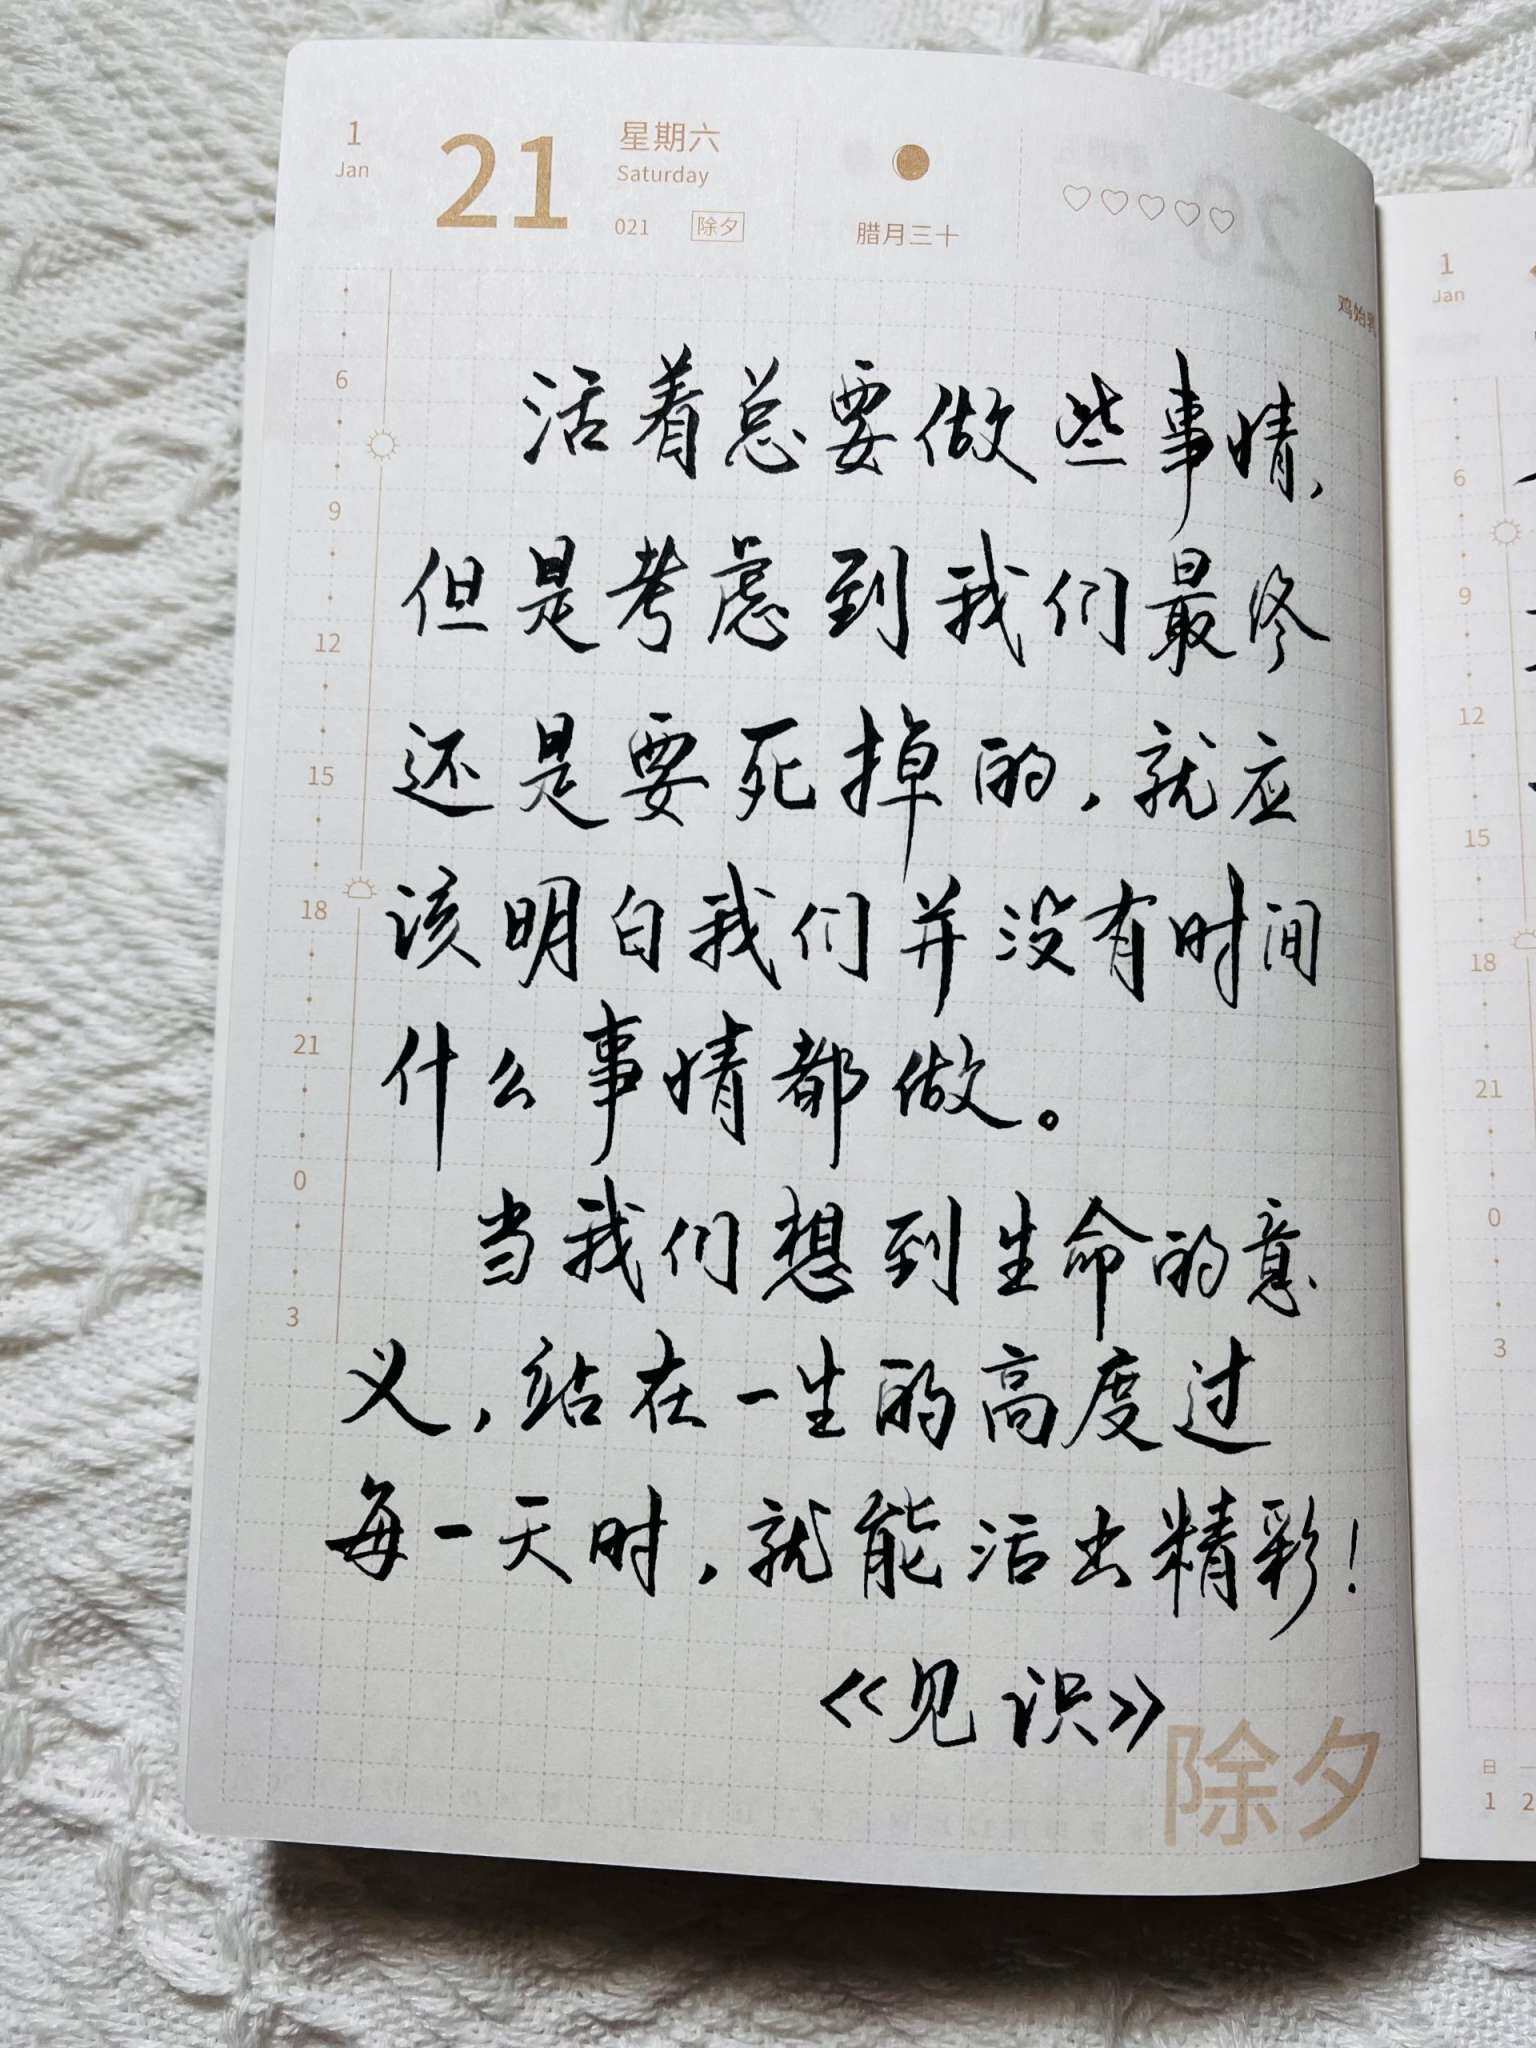 1
Jan
21
星期六
Saturday
021 除夕
腊月三十
鸡始
6
9
12
15
18
21
0
3
活着总要做些事情，
但是考虑到我们最终
还是要死掉的，就应
该明白我们并没有时间
什么事情都做。
当我们想到生命的意
义，站在一生的高度过
每一天时，就能活出精彩！
《见识》
除夕
1
Jan
6
9
12
15
18
21
0
3
日 一
1 2